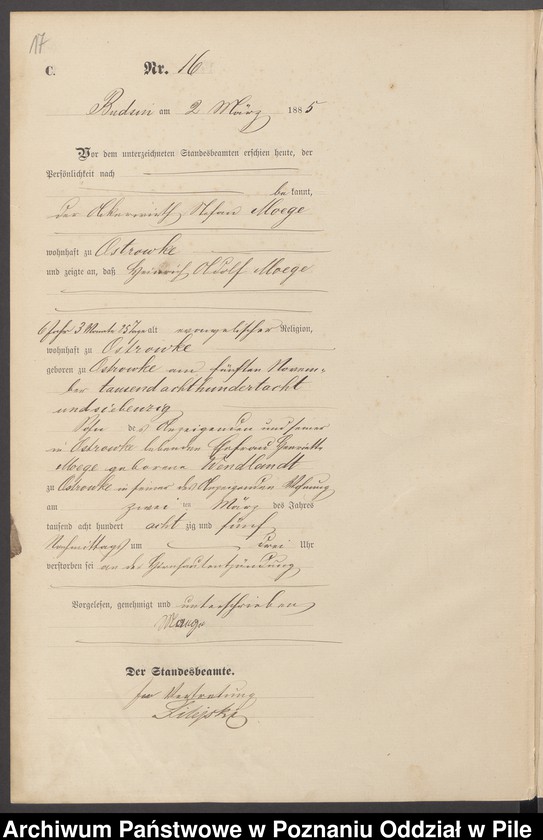 17
C.
Nr. 16
Budsin am 2 März 1885
Vor dem unterzeichneten Standesbeamten erschien heute, der
Persönlichkeit nach
bekannt,
der Ackerwirth Stefan Moege
wohnhaft zu Ostrowke
und zeigte an, daß Heinrich Adolf Moege
6 Jahr 3 Monate 25 Tage alt evangelischer Religion,
wohnhaft zu Ostrowke
geboren zu Ostrowke am fünften Novem-
ber tausendachthundertacht
undsiebenzig
Sohn des Anzeigenden und seiner
in Ostrowke lebenden Ehefrau Henriette
Moege geborene Wendlandt
zu Ostrowke in seiner des Anzeigenden Wohnung
am zwei ten März des Jahres
tausend acht hundert acht zig und fünf
Nachmittags um drei Uhr
verstorben sei an der Hirnhautentzündung
Vorgelesen, genehmigt und unterschrieben
Moege
Der Standesbeamte.
In Vertretung
Archiwum Państwowe w Poznaniu Oddział w Pile